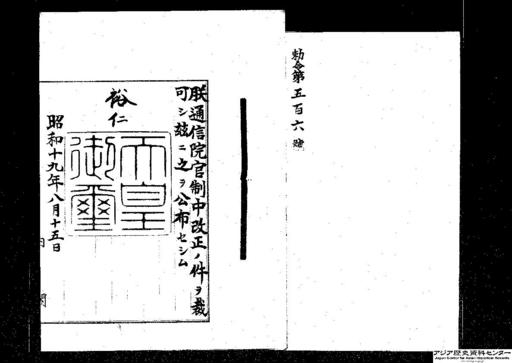 勅令第五百六號
朕通信院官制中改正ノ件ヲ裁
可シ玆ニ之ヲ公布セシム
裕仁
天皇
御璽
昭和十九年八月十五日
内閣
アジア歴史資料センター
Japan Center for Asian Historical Records